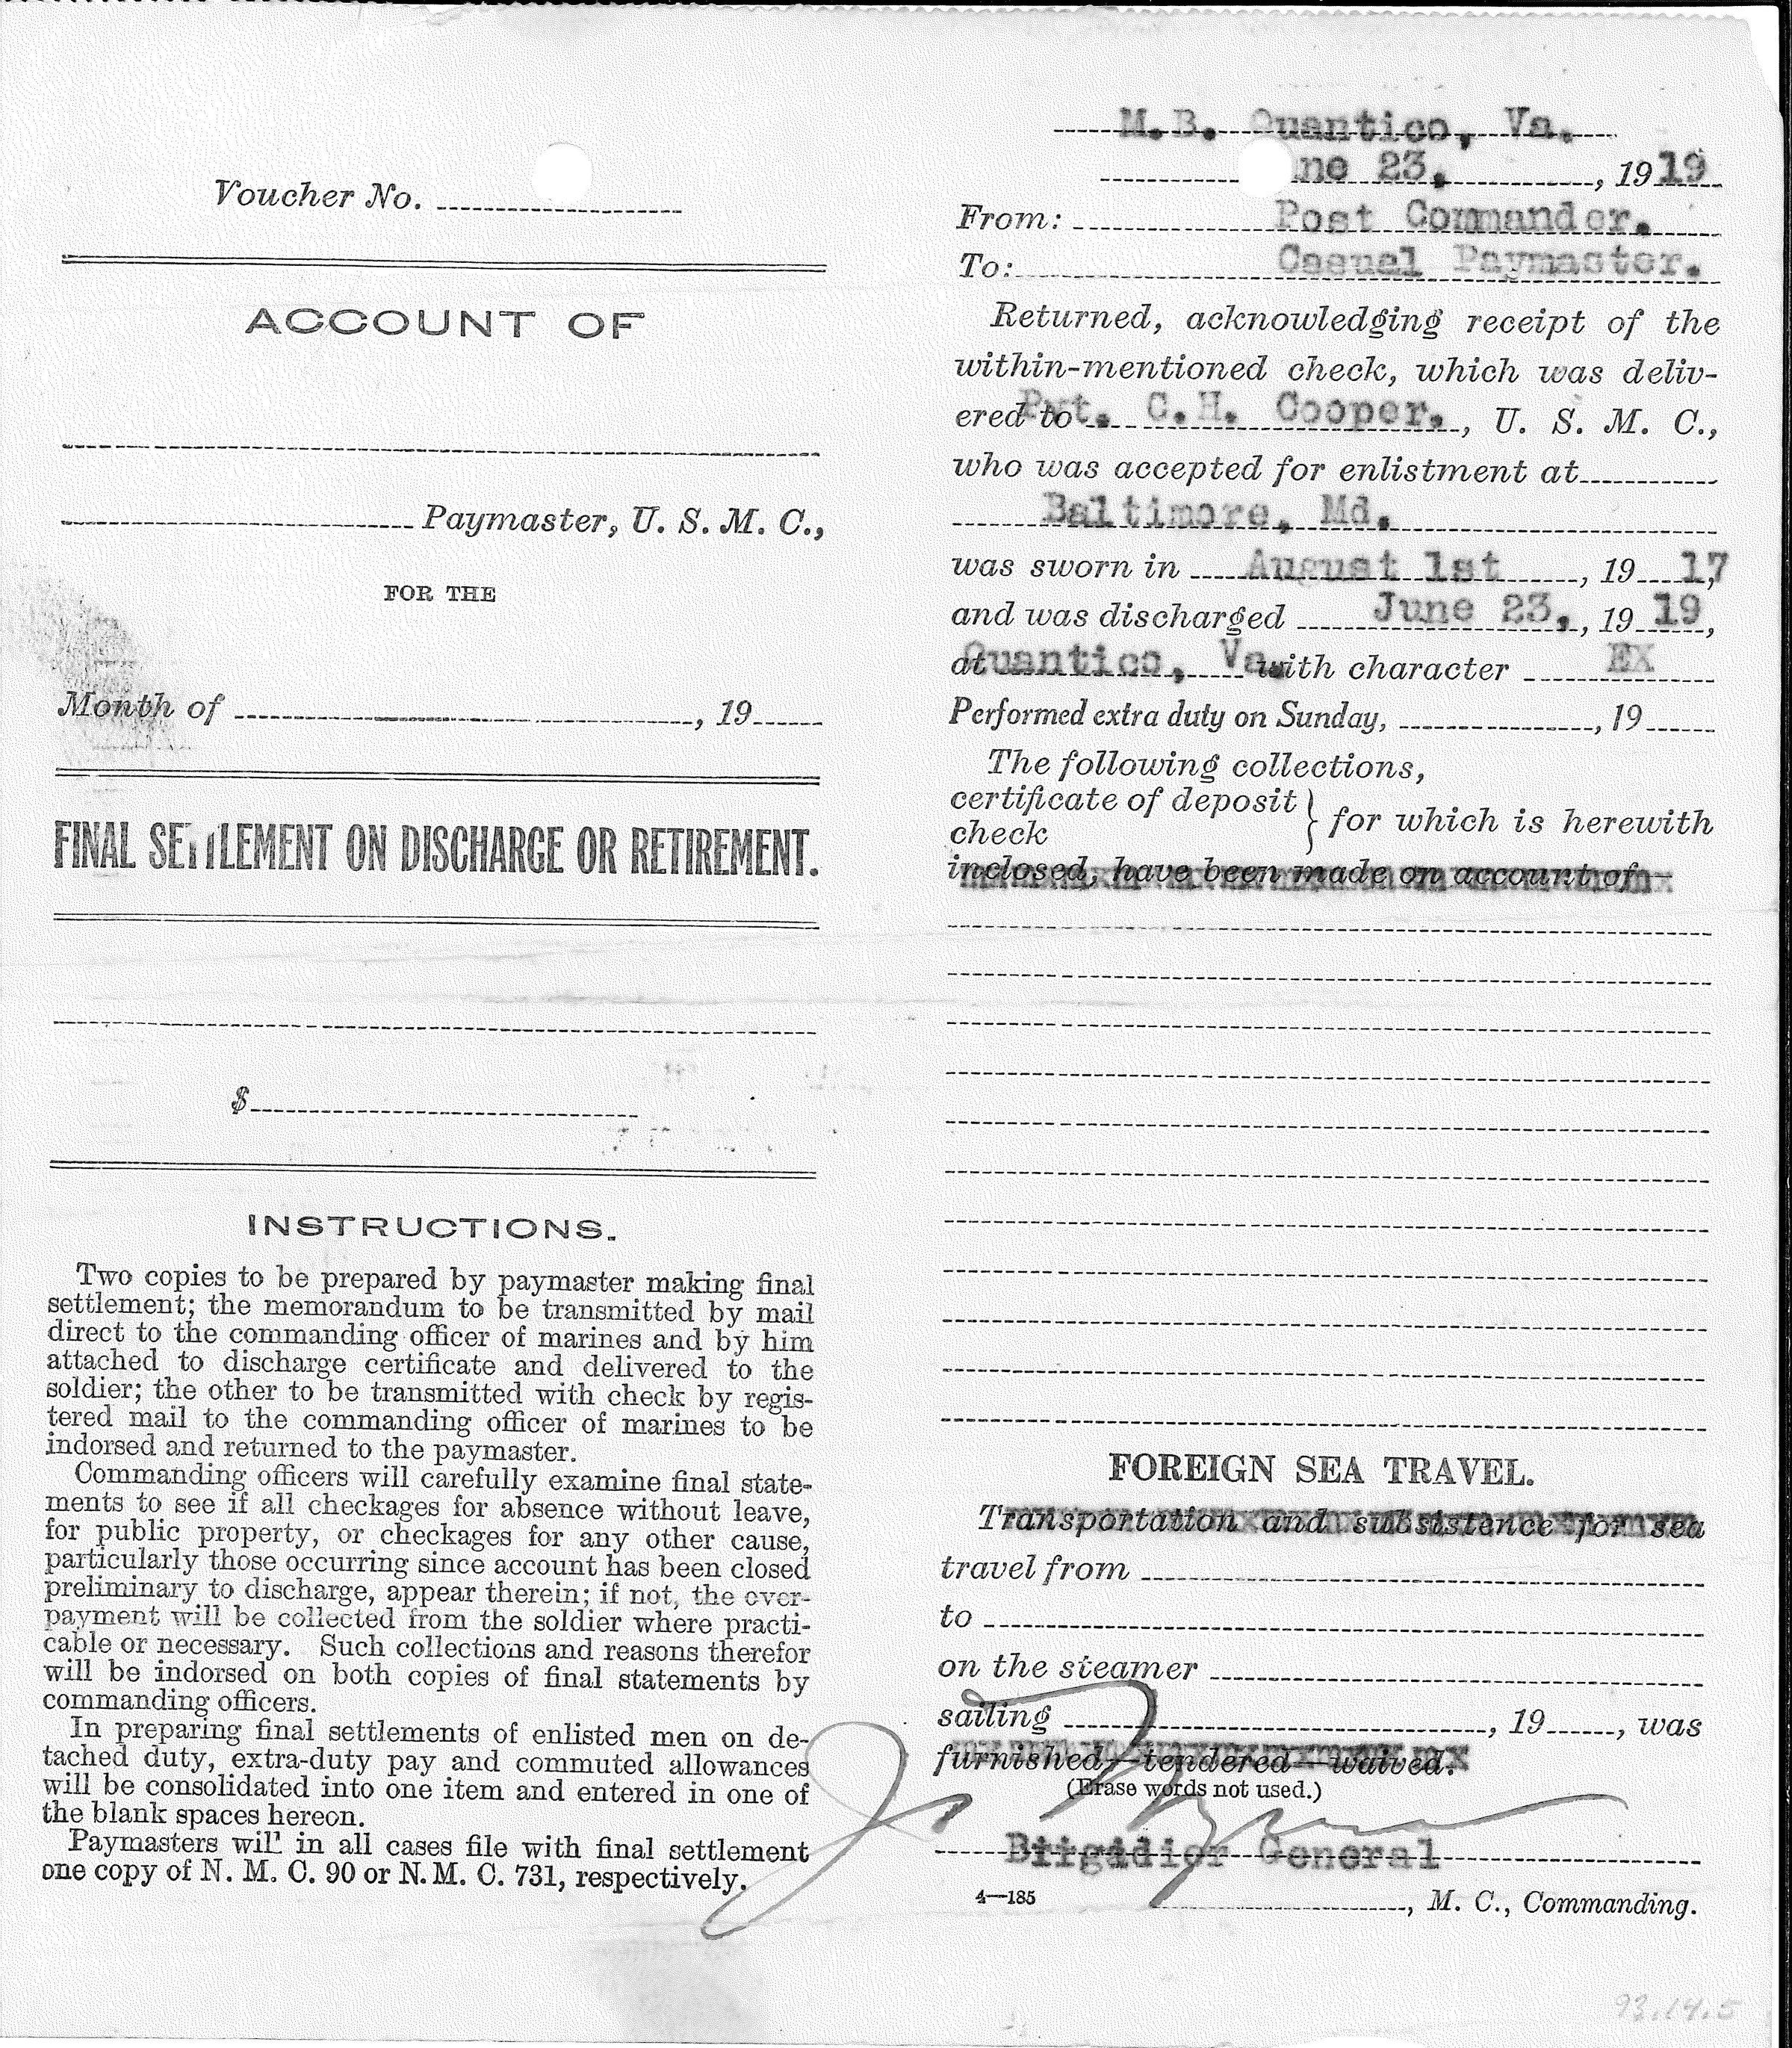 Voucher No.
ACCOUNT OF
Paymaster, U. S. M. C.,
FOR THE
Month of , 19
FINAL SETTLEMENT ON DISCHARGE OR RETIREMENT.
$
INSTRUCTIONS.
Two copies to be prepared by paymaster making final
settlement; the memorandum to be transmitted by mail
direct to the commanding officer of marines and by him
attached to discharge certificate and delivered to the
soldier; the other to be transmitted with check by regis-
tered mail to the commanding officer of marines to be
indorsed and returned to the paymaster.
Commanding officers will carefully examine final state-
ments to see if all checkages for absence without leave,
for public property, or checkages for any other cause,
particularly those occurring since account has been closed
preliminary to discharge, appear therein; if not, the over-
payment will be collected from the soldier where practi-
cable or necessary. Such collections and reasons therefor
will be indorsed on both copies of final statements by
commanding officers.
In preparing final settlements of enlisted men on de-
tached duty, extra-duty pay and commuted allowances
will be consolidated into one item and entered in one of
the blank spaces hereon.
Paymasters will in all cases file with final settlement
one copy of N. M. C. 90 or N. M. C. 731, respectively.
M.B. Quantico, Va.
ne 23, , 19 19
From: Post Commander.
To: Casual Paymaster.
Returned, acknowledging receipt of the
within-mentioned check, which was deliv-
ered to Pvt. C.H. Cooper, , U. S. M. C.,
who was accepted for enlistment at
Baltimore, Md.
was sworn in August 1st , 19 17,
and was discharged June 23, , 19 19,
at Quantico, Va. with character EX
Performed extra duty on Sunday, , 19
The following collections,
certificate of deposit
check } for which is herewith
inclosed, have been made on account of—
FOREIGN SEA TRAVEL.
Transportation and subsistence for sea
travel from
to
on the steamer
sailing , 19 , was
furnished—tendered—waived.
(Erase words not used.)
Brigadior General
4—185
, M. C., Commanding.
93.14.5